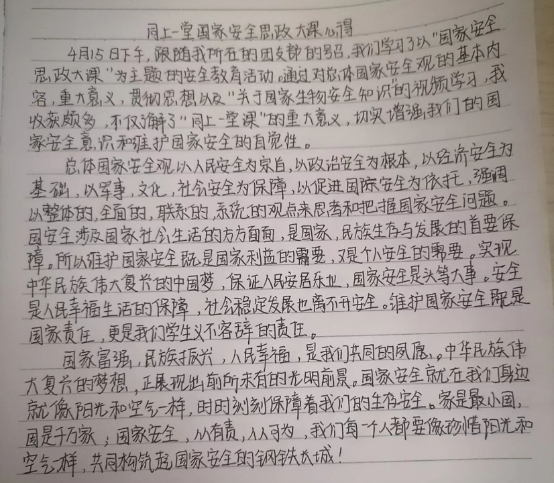 同上一堂国家安全思政大课心得
4月15日下午,跟随我所在的团支部的号召,我们学习了以"国家安全
思政大课"为主题的安全教育活动。通过对总体国家安全观的基本内
容,重大意义,贯彻思想以及"关于国家生物安全知识"的视频学习,我
收获颇多,不仅了解了"同上一堂课"的重大意义,切实增强我们的国
家安全意识和维护国家安全的自觉性。
总体国家安全观以人民安全为宗旨,以政治安全为根本,以经济安全为
基础,以军事,文化,社会安全为保障,以促进国际安全为依托,强调
以整体的,全面的,联系的,系统的观点来思考和把握国家安全问题。
国安全涉及国家社会生活的方方面面,是国家,民族生存与发展的首要保
障。所以维护国家安全既是国家利益的需要,又是个人安全的需要。实现
中华民族伟大复兴的中国梦,保证人民安居乐业,国家安全是头等大事。安全
是人民幸福生活的保障,社会稳定发展也离不开安全。维护国家安全既是
国家责任,更是我们学生义不容辞的责任。
国家富强,民族振兴,人民幸福,是我们共同的夙愿。中华民族伟
大复兴的梦想,正展现出前所未有的光明前景。国家安全就在我们身边
就像阳光和空气一样,时时刻刻保障着我们的生存安全。家是最小国,
国是千万家;国家安全,人人有责,人人可为,我们每一个人都要像珍惜阳光和
空气一样,共同构筑起国家安全的钢铁长城!